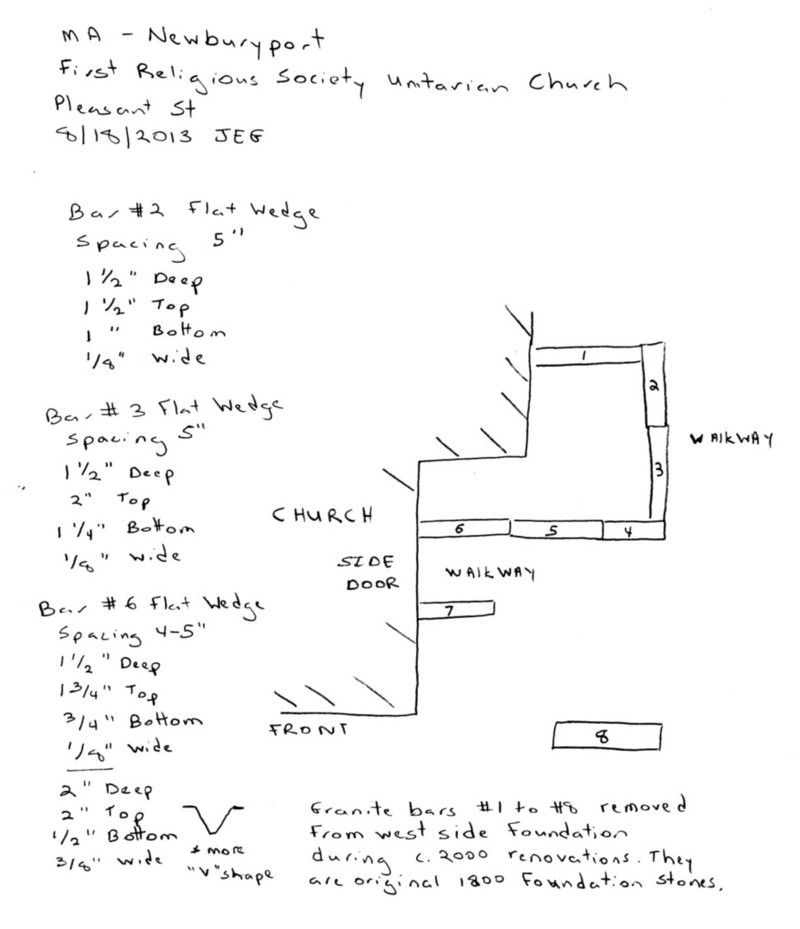 MA - Newburyport
First Religious Society Unitarian Church
Pleasant St
8/18/2013 JEG
Bar #2 Flat Wedge
Spacing 5"
1 1/2" Deep
1 1/2" Top
1" Bottom
1/8" wide
Bar #3 Flat Wedge
Spacing 5"
1 1/2" Deep
2" Top
1 1/4" Bottom
1/8" wide
Bar #6 Flat Wedge
Spacing 4-5"
1 1/2" Deep
1 3/4" Top
3/4" Bottom
1/8" wide
2" Deep
2" Top
1/2" Bottom
3/8" wide
* more
"V" shape
1
2
WALKWAY
3
CHURCH
6
5
4
SIDE
DOOR
WALKWAY
7
FRONT
8
Granite bars #1 to #8 removed
From west side Foundation
during c. 2000 renovations. They
are original 1800 Foundation stones.